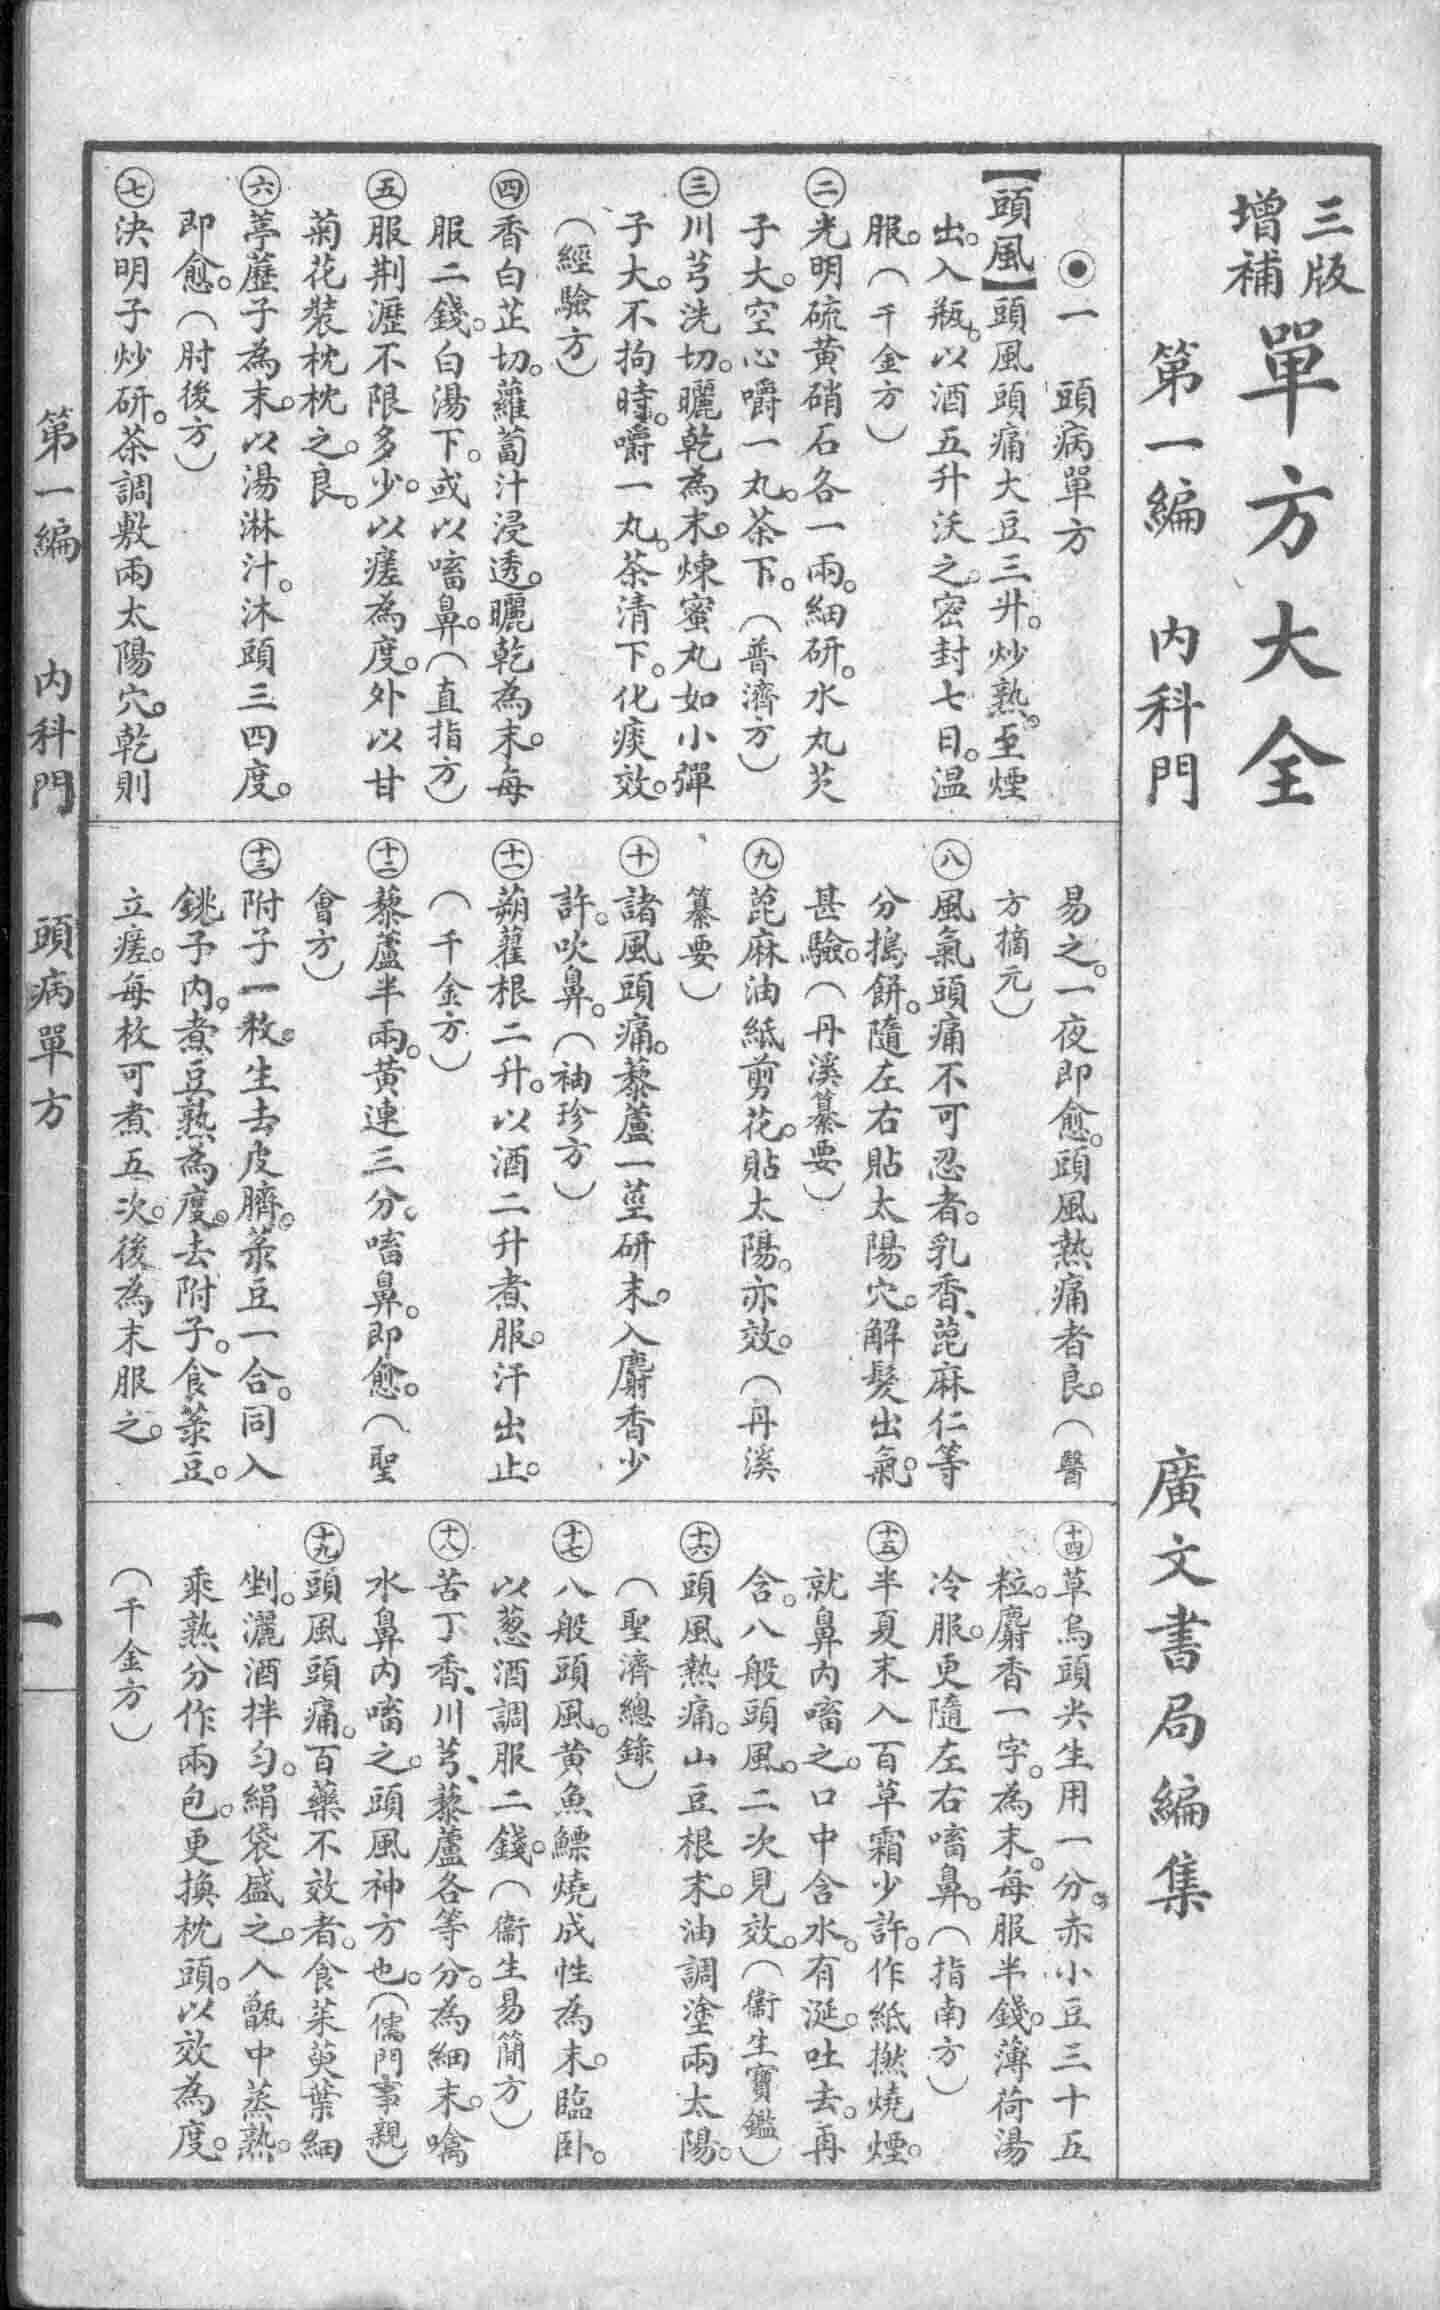 三版增補單方大全
第一編　內科門　廣文書局編集
◉一　頭病單方
【頭風】頭風頭痛大豆三升。炒熟。至煙
出。入瓶。以酒五升沃之。密封七日。温
服。（千金方）
㊁光明硫黄硝石各一兩。細研。水丸芡
子大。空心嚼一丸。茶下。（普濟方）
㊂川芎洗切。曬乾為末。煉蜜丸如小彈
子大。不拘時。嚼一丸。茶清下。化痰效。
（經驗方）
㊃香白芷切。蘿蔔汁浸透。曬乾為末。每
服二錢。白湯下。或以㗜鼻。（直指方）
㊄服荆瀝不限多少。以瘥為度。外以甘
菊花裝枕枕之。良。
㊅葶藶子為末。以湯淋汁。沐頭三四度。
即愈。（肘後方）
㊆決明子炒研。茶調敷兩太陽穴。乾則
易之。一夜即愈。頭風熱痛者良。（醫
方摘元）
㊇風氣頭痛不可忍者。乳香、蓖麻仁等
分搗餅。隨左右貼太陽穴。解髮出氣。
甚驗。（丹溪纂要）
㊈蓖麻油紙剪花。貼太陽。亦效。（丹溪
纂要）
㊉諸風頭痛。藜蘆一莖研末。入麝香少
許。吹鼻。（袖珍方）
十一蒴藋根二升。以酒二升煮服。汗出止。
（千金方）
十二藜蘆半兩。黄連三分。㗜鼻。即愈。（聖
會方）
十三附子一枚。生去皮臍。菉豆一合。同入
銚子內。煮豆熟為度。去附子。食菉豆。
立瘥。每枚可煮五次。後為末服之。
十四草烏頭尖生用一分。赤小豆三十五
粒。麝香一字。為末。每服半錢。薄荷湯
冷服。更隨左右㗜鼻。（指南方）
十五半夏末入百草霜少許。作紙撚燒煙。
就鼻內㗜之。口中含水。有涎。吐去。再
含。八般頭風。二次見效。（衞生寶鑑）
十六頭風熱痛。山豆根末。油調塗兩太陽。
（聖濟總錄）
十七八般頭風。黄魚鰾燒成性為末。臨卧。
以葱酒調服二錢。（衞生易簡方）
十八苦丁香、川芎、藜蘆各等分。為細末。噙
水鼻內㗜之。頭風神方也。（儒門事親）
十九頭風頭痛。百藥不效者。食茱萸葉細
剉。灑酒拌匀。絹袋盛之。入甑中蒸熟。
乘熟分作兩包。更換枕頭。以效為度。
（千金方）
第一編　內科門　頭病單方　一